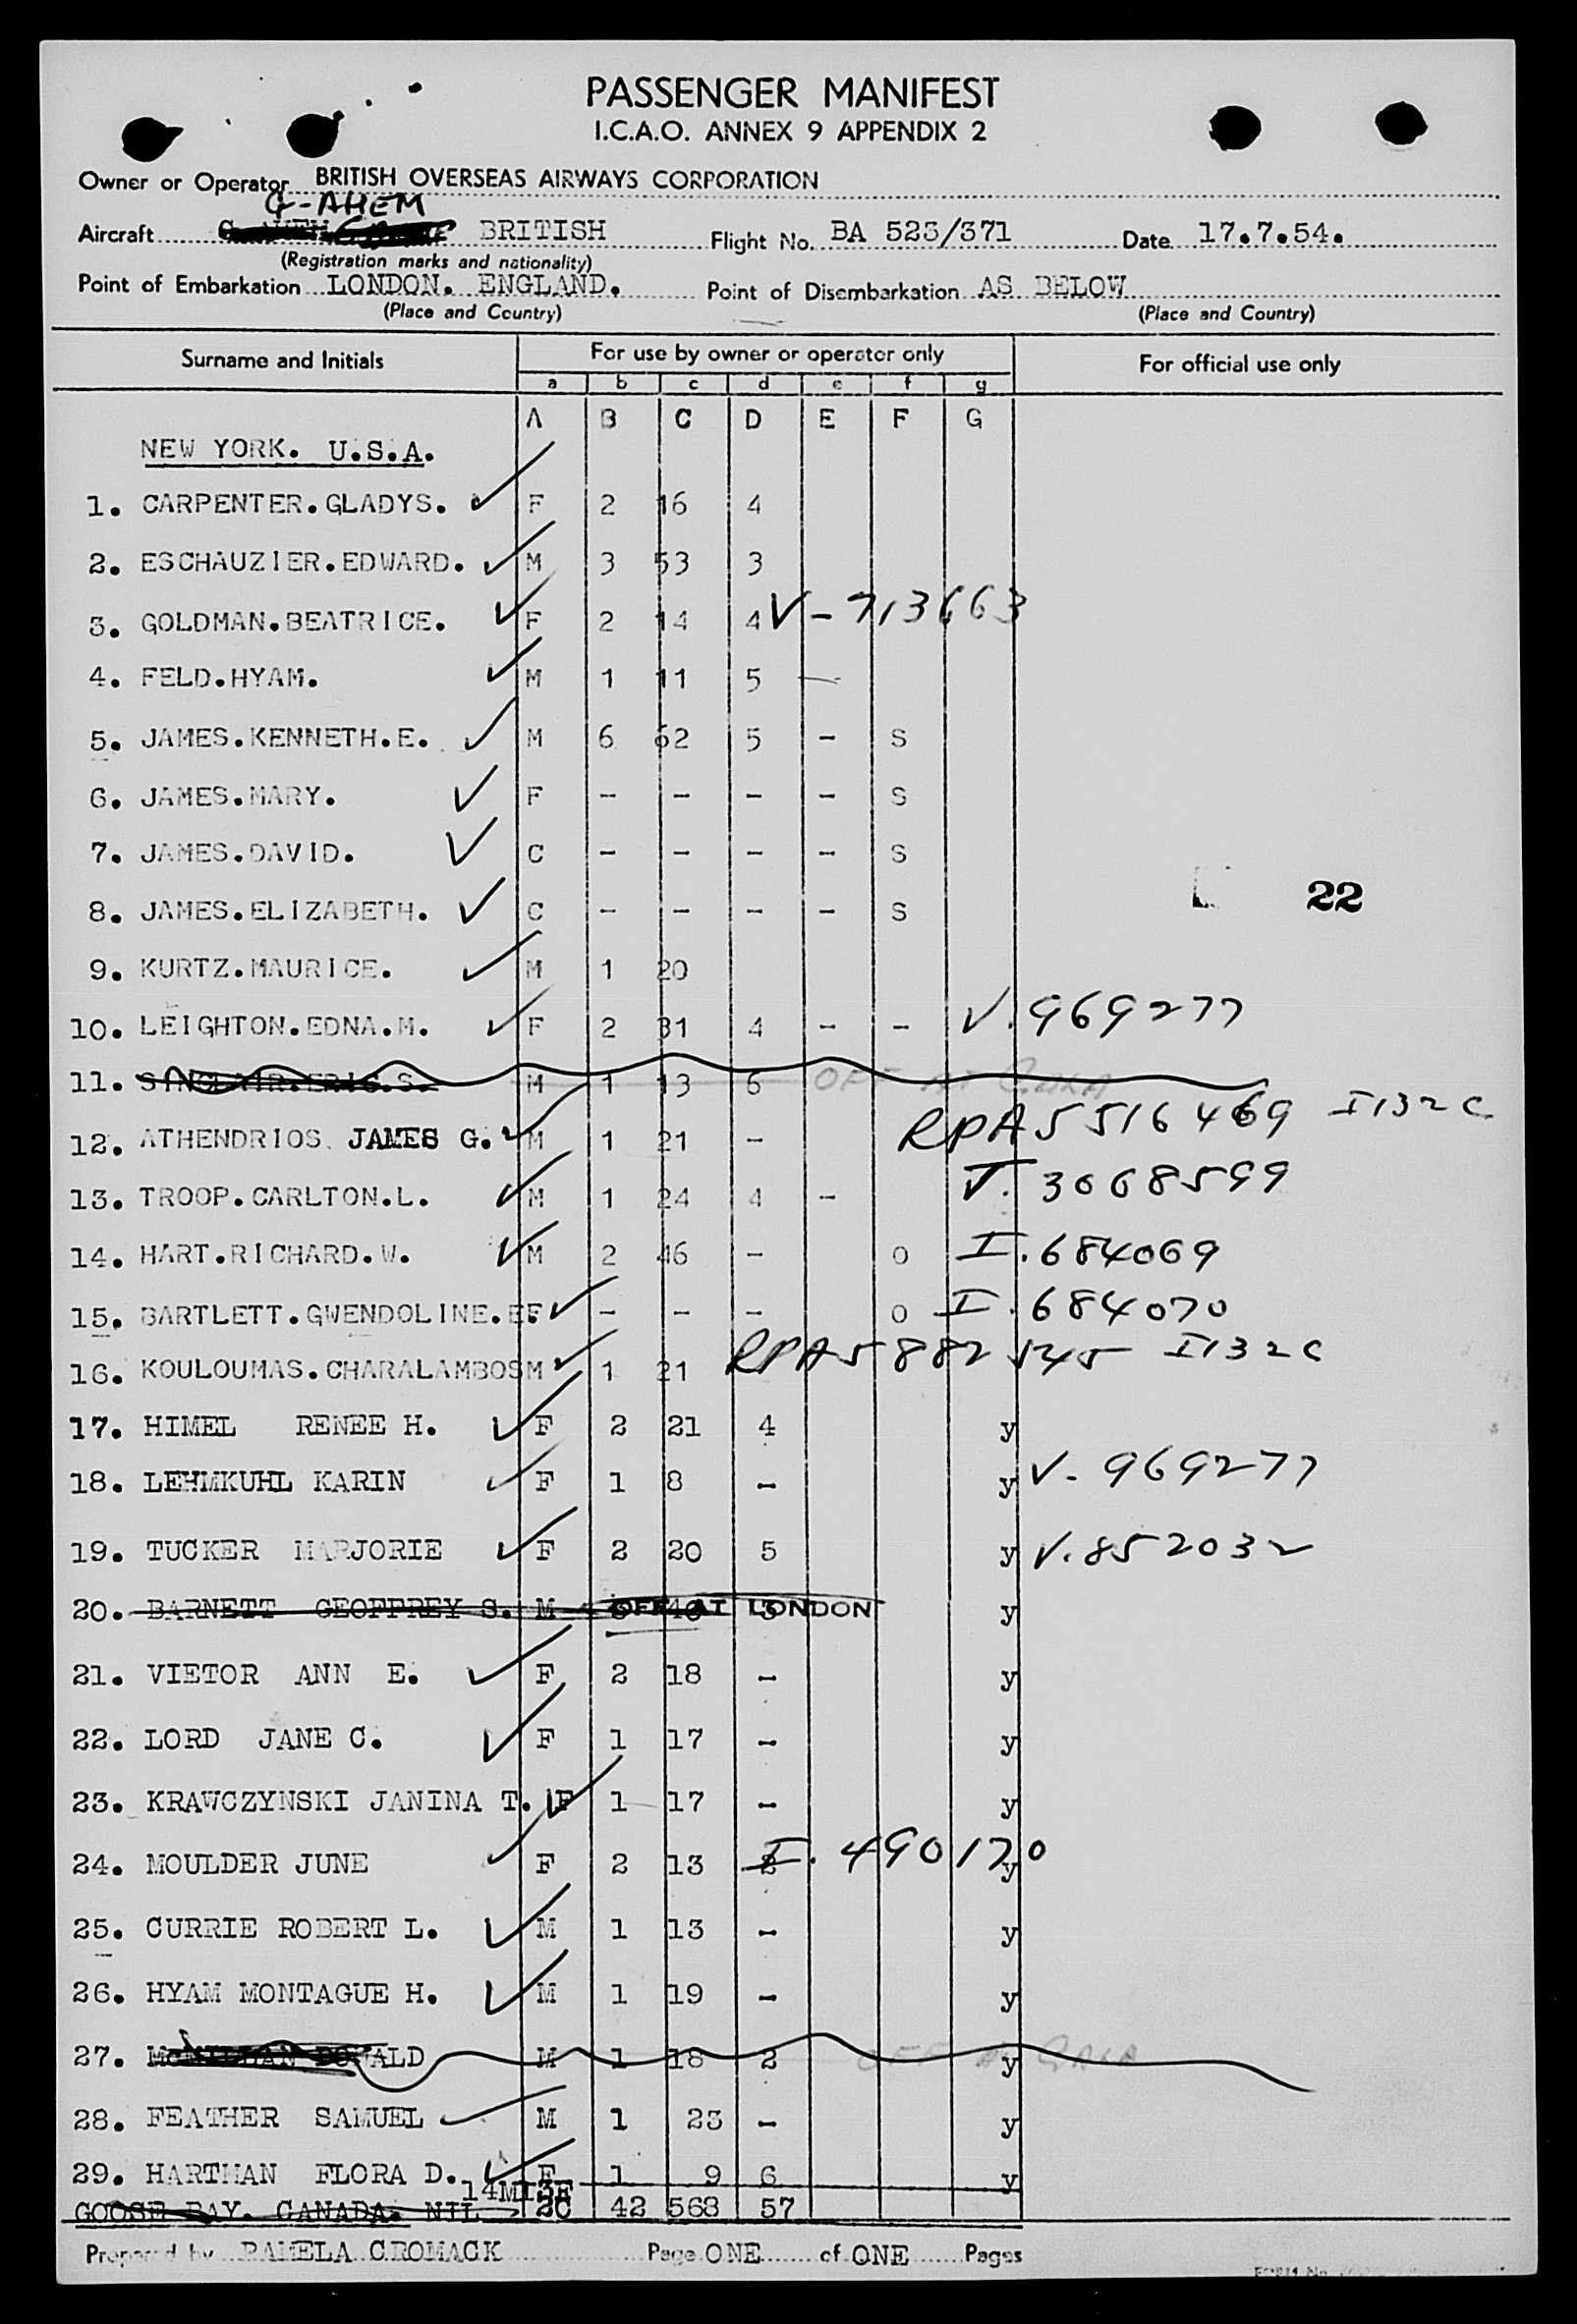 PASSENGER MANIFEST
I.C.A.O. ANNEX 9 APPENDIX 2
Owner or Operator BRITISH OVERSEAS AIRWAYS CORPORATION
G-AHEM
Aircraft BRITISH Flight No. BA 523/371 Date 17.7.54.
(Registration marks and nationality)
Point of Embarkation LONDON. ENGLAND. Point of Disembarkation AS BELOW
(Place and Country) (Place and Country)
Surname and Initials For use by owner or operator only For official use only
a b c d e f g
A B C D E F G
NEW YORK. U.S.A.
1. CARPENTER.GLADYS. F 2 16 4
2. ESCHAUZIER.EDWARD. M 3 53 3
3. GOLDMAN.BEATRICE. F 2 14 4 V-713663
4. FELD.HYAM. M 1 11 5 -
5. JAMES.KENNETH.E. M 6 62 5 - S
6. JAMES.MARY. F - - - - S
7. JAMES.DAVID. C - - - - S
22
8. JAMES.ELIZABETH. C - - - - S
9. KURTZ.MAURICE. M 1 20
10. LEIGHTON.EDNA.M. F 2 31 4 - - V.969277
11. SINCLAIR.ERIC.S. M 1 13 6 OFF AT
12. ATHENDRIOS JAMES G. M 1 21 - RPA 5516469 I132C
13. TROOP.CARLTON.L. M 1 24 4 - V. 3068599
14. HART.RICHARD.W. M 2 46 - O I.684069
15. BARTLETT.GWENDOLINE.E. F - - - O I.684070
16. KOULOUMAS.CHARALAMBOS M 1 21 RPA5882545 I132C
17. HIMEL RENEE H. F 2 21 4 y
18. LEHMKUHL KARIN F 1 8 - y V-969277
19. TUCKER MARJORIE F 2 20 5 y V.852032
20. BARNETT GEOFFREY S. M OFF AT LONDON y
21. VIETOR ANN E. F 2 18 - y
22. LORD JANE C. F 1 17 - y
23. KRAWCZYNSKI JANINA T. F 1 17 - y
24. MOULDER JUNE F 2 13 2 I.490170 y
25. CURRIE ROBERT L. M 1 13 - y
26. HYAM MONTAGUE H. M 1 19 - y
27. M 1 18 2 OFF y
28. FEATHER SAMUEL M 1 23 - y
29. HARTMAN FLORA D. F 1 9 6 y
14M13F
GOOSE BAY. CANADA. NIL 2C 42 568 57
Prepared by PAMELA CROMACK Page ONE of ONE Pages